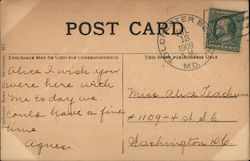 POST CARD
THIS SPACE MAY BE USED FOR CORRESPONDENCE
THIS SPACE IS FOR ADDRESS ONLY
1909
MD.
Alice I wish you
were here with
me to day we
could have a fine
time.
Agnes.
Miss Alice
#1109-4 st S.E.
Washington D.C.